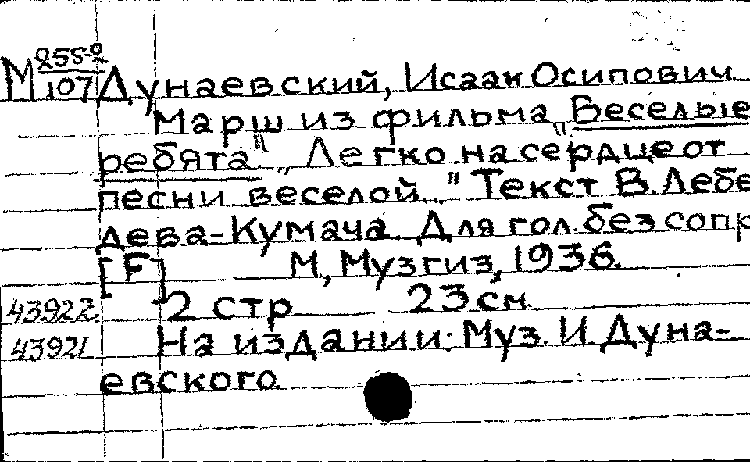 М 855-2
107 Дунаевский, Исаак Осипович
Марш из фильма „Веселые
ребята". „Легко на сердце от
песни веселой..." Текст В. Лебе
дева-Кумача. Для гол. без сопр
[F] М, Музгиз, 1936.
43922 2 стр 23 см
43921 На издании: Муз. И. Дуна-
евского